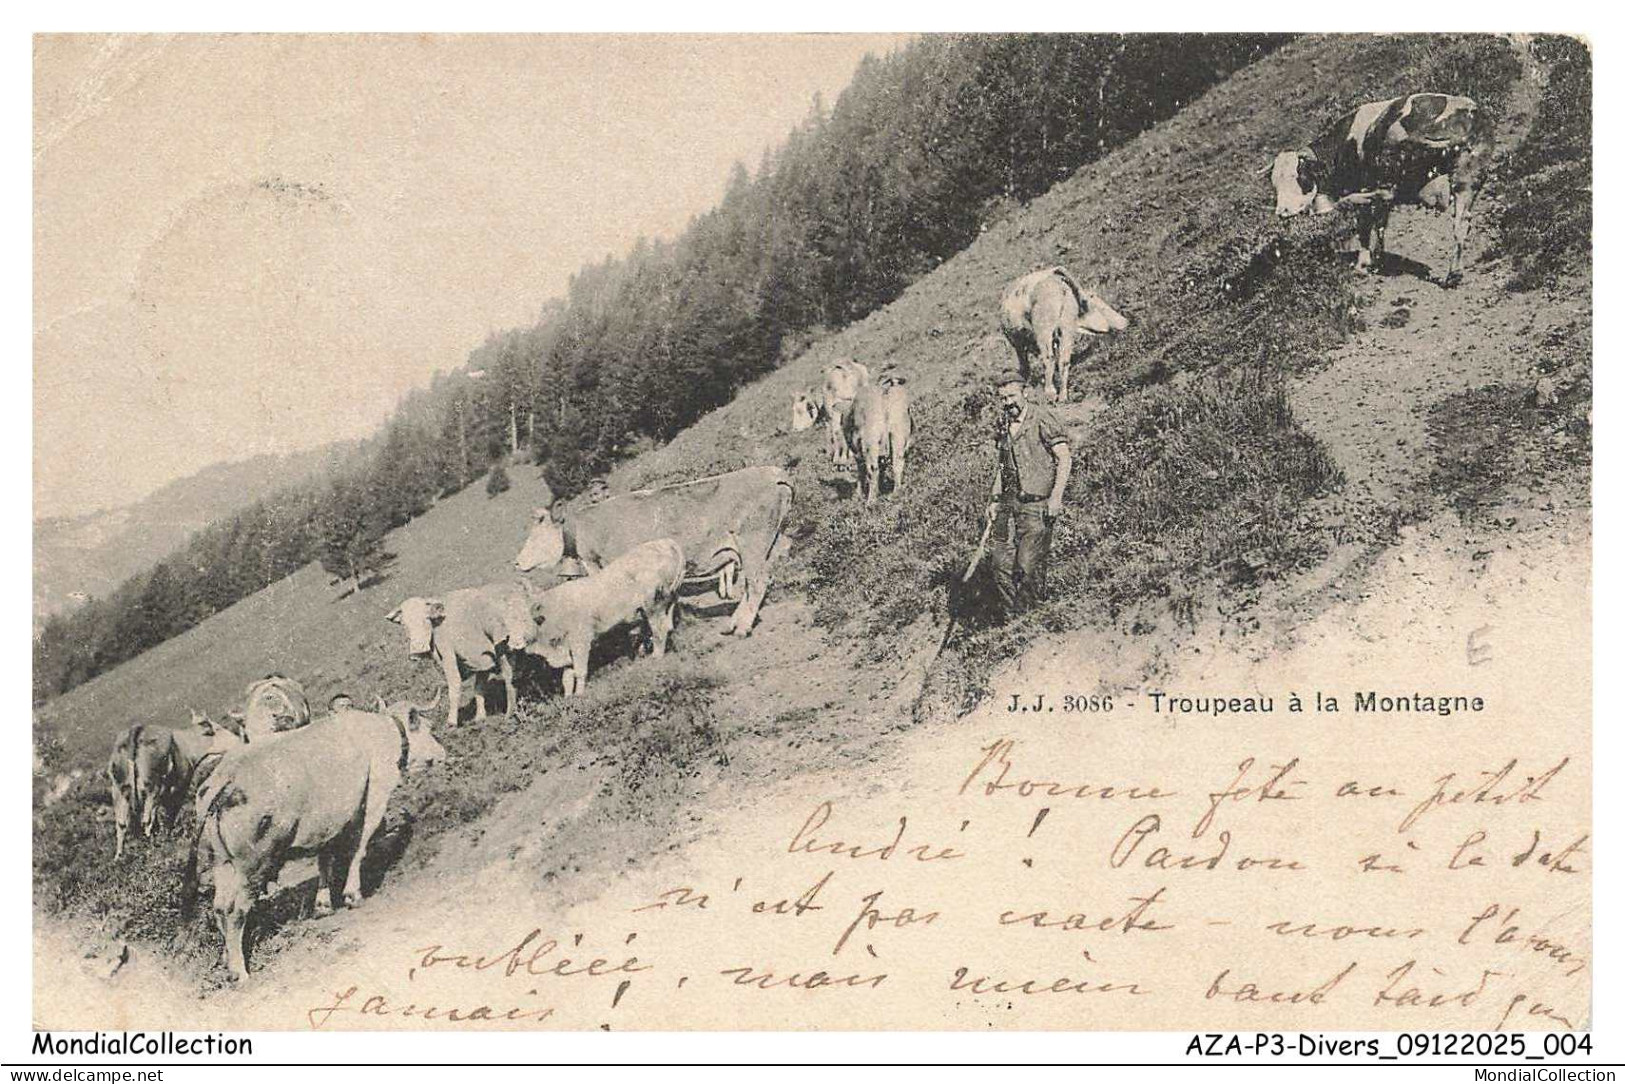 E
J.J. 3086 - Troupeau à la Montagne
Bonne fête au petit
André ! Pardon si la date
n'est pas exacte - nous l'avons
oubliée, mais mieux vaut tard que
jamais !
MondialCollection
AZA-P3-Divers_09122025_004
www.delcampe.net
MondialCollection